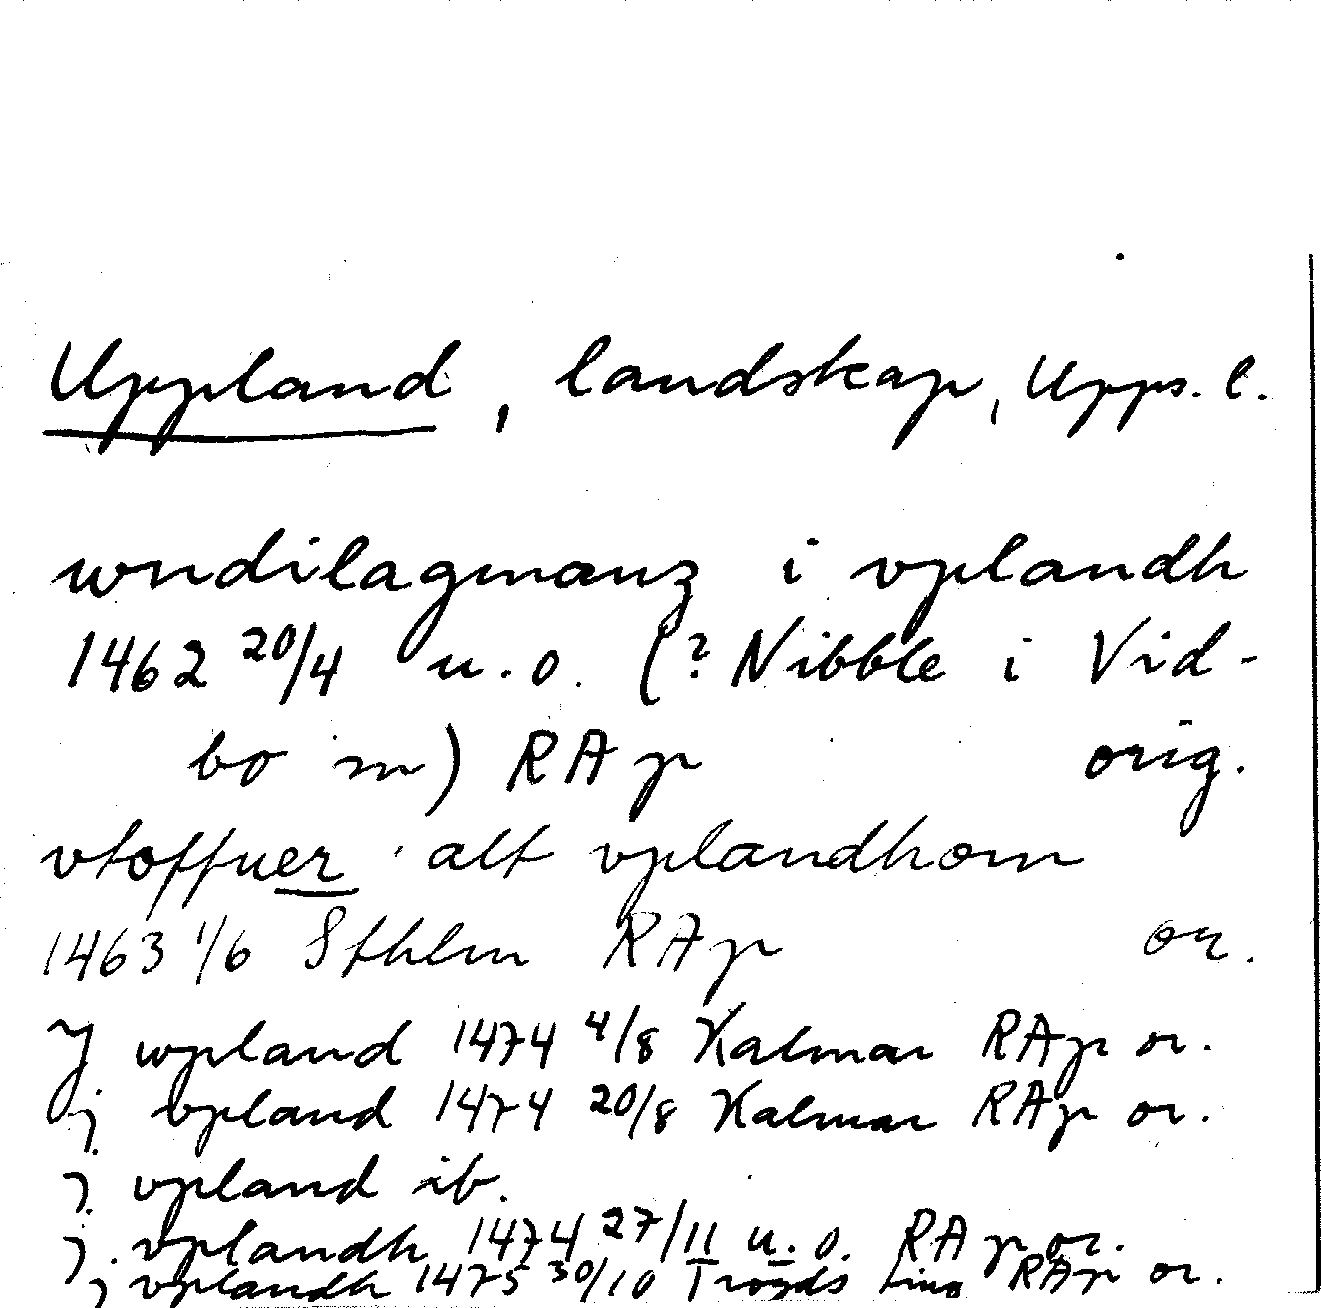 Uppland, landskap, Upps. l.
wndilagmanz i vplandh
1462 20/4 u.o. (? Nibble i Vid-
bo sn) RAp orig.
vtoffuer alt vplandhom
1463 1/6 Sthlm RAp or.
J wpland 1474 4/8 Kalmar RAp or.
j vpland 1474 20/8 Kalmar RAp or.
j vpland ib.
j vplandh 1474 27/11 u.o. RAp or.
j vplandh 1475 30/10 Trögds ting RAp or.